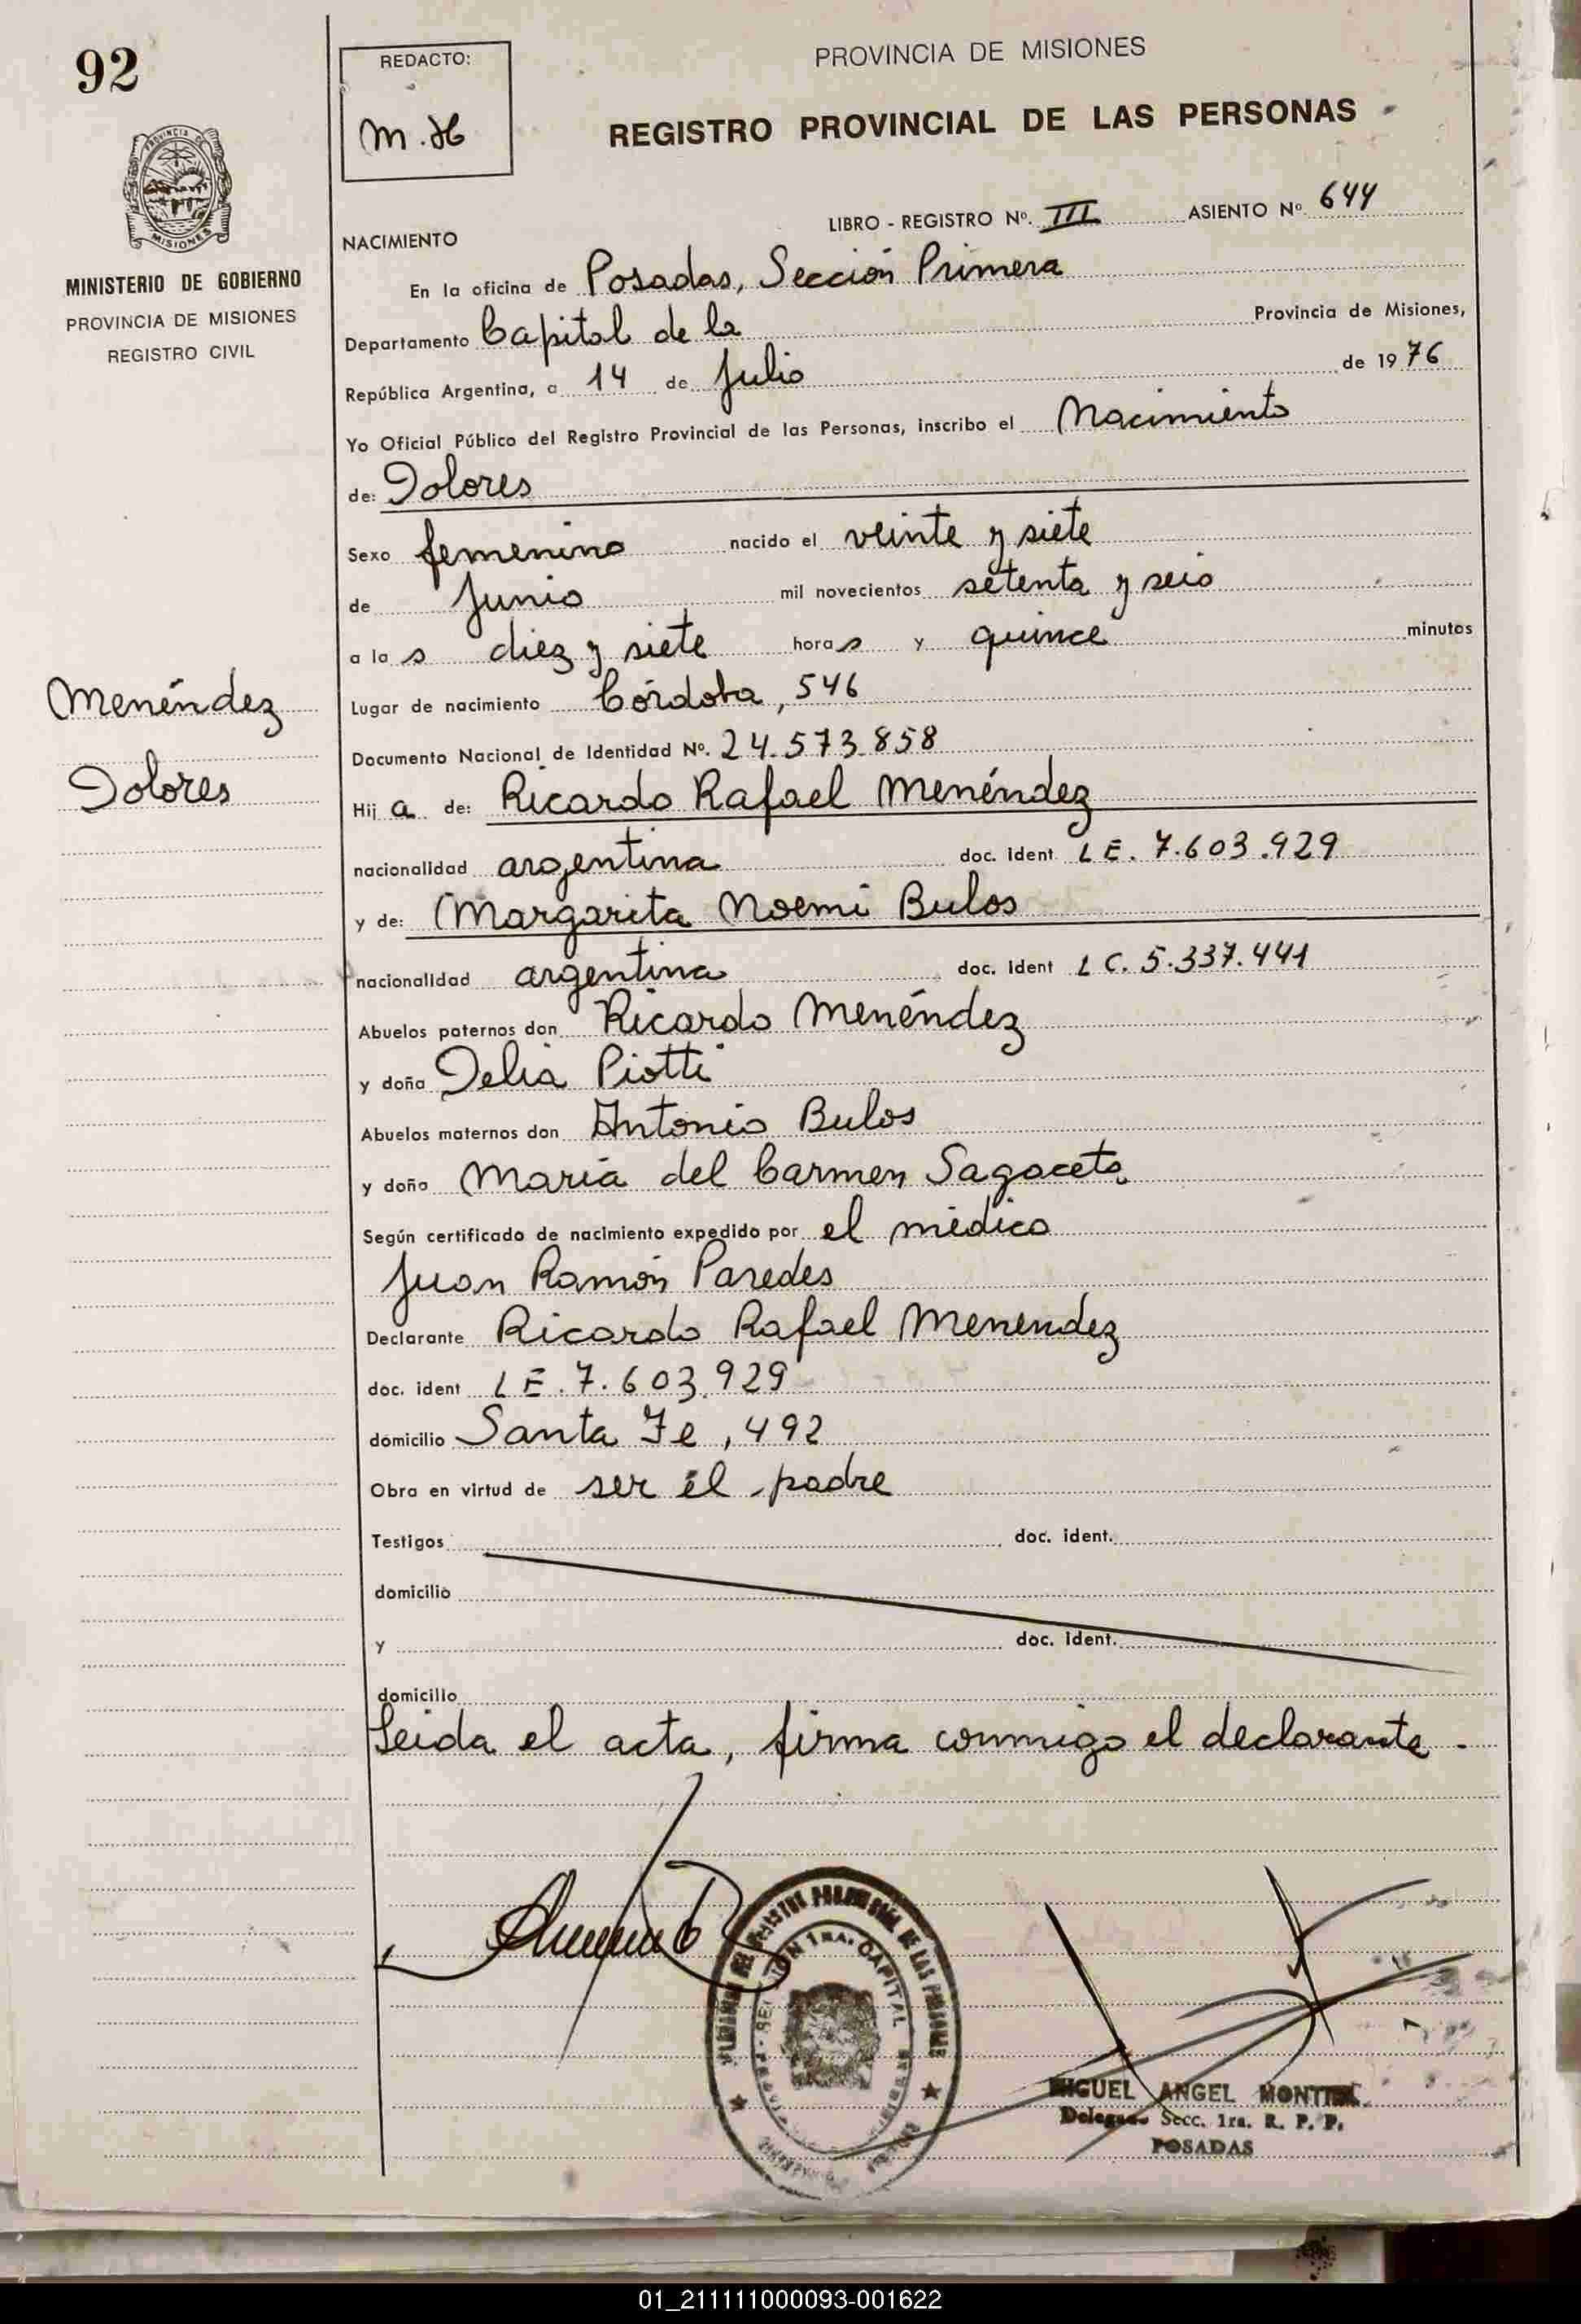 92
REDACTO:
M.H
PROVINCIA DE MISIONES
REGISTRO PROVINCIAL DE LAS PERSONAS
PROVINCIA DE
MISIONES
MINISTERIO DE GOBIERNO
PROVINCIA DE MISIONES
REGISTRO CIVIL
LIBRO - REGISTRO Nº. III ASIENTO Nº 644
NACIMIENTO
En la oficina de Posadas, Sección Primera
Departamento Capital de la Provincia de Misiones,
República Argentina, a 14 de Julio de 1976
Yo Oficial Público del Registro Provincial de las Personas, inscribo el Nacimiento
de: Dolores
Sexo femenino nacido el veinte y siete
de Junio mil novecientos setenta y seis
a las diez y siete horas y quince minutos
Menéndez
Dolores
Lugar de nacimiento Córdoba, 546
Documento Nacional de Identidad Nº. 24.573.858
Hija de: Ricardo Rafael Menéndez
nacionalidad argentina doc. ident L E. 7.603.929
y de: Margarita Noemí Bulos
nacionalidad argentina doc. ident L C. 5.337.441
Abuelos paternos don Ricardo Menéndez
y doña Delia Piotti
Abuelos maternos don Antonio Bulos
y doña María del Carmen Sagaceta
Según certificado de nacimiento expedido por el médico
Juan Ramón Paredes
Declarante Ricardo Rafael Menendez
doc. ident L E. 7.603.929
domicilio Santa Fe, 492
Obra en virtud de ser el padre
Testigos doc. ident.
domicilio
y doc. ident.
domicilio
Leida el acta, firma conmigo el declarante.
SECCIÓN 1RA. CAPITAL
MIGUEL ANGEL MONTIEL
Delegado Secc. 1ra. R. P. P.
POSADAS
01_211111000093-001622